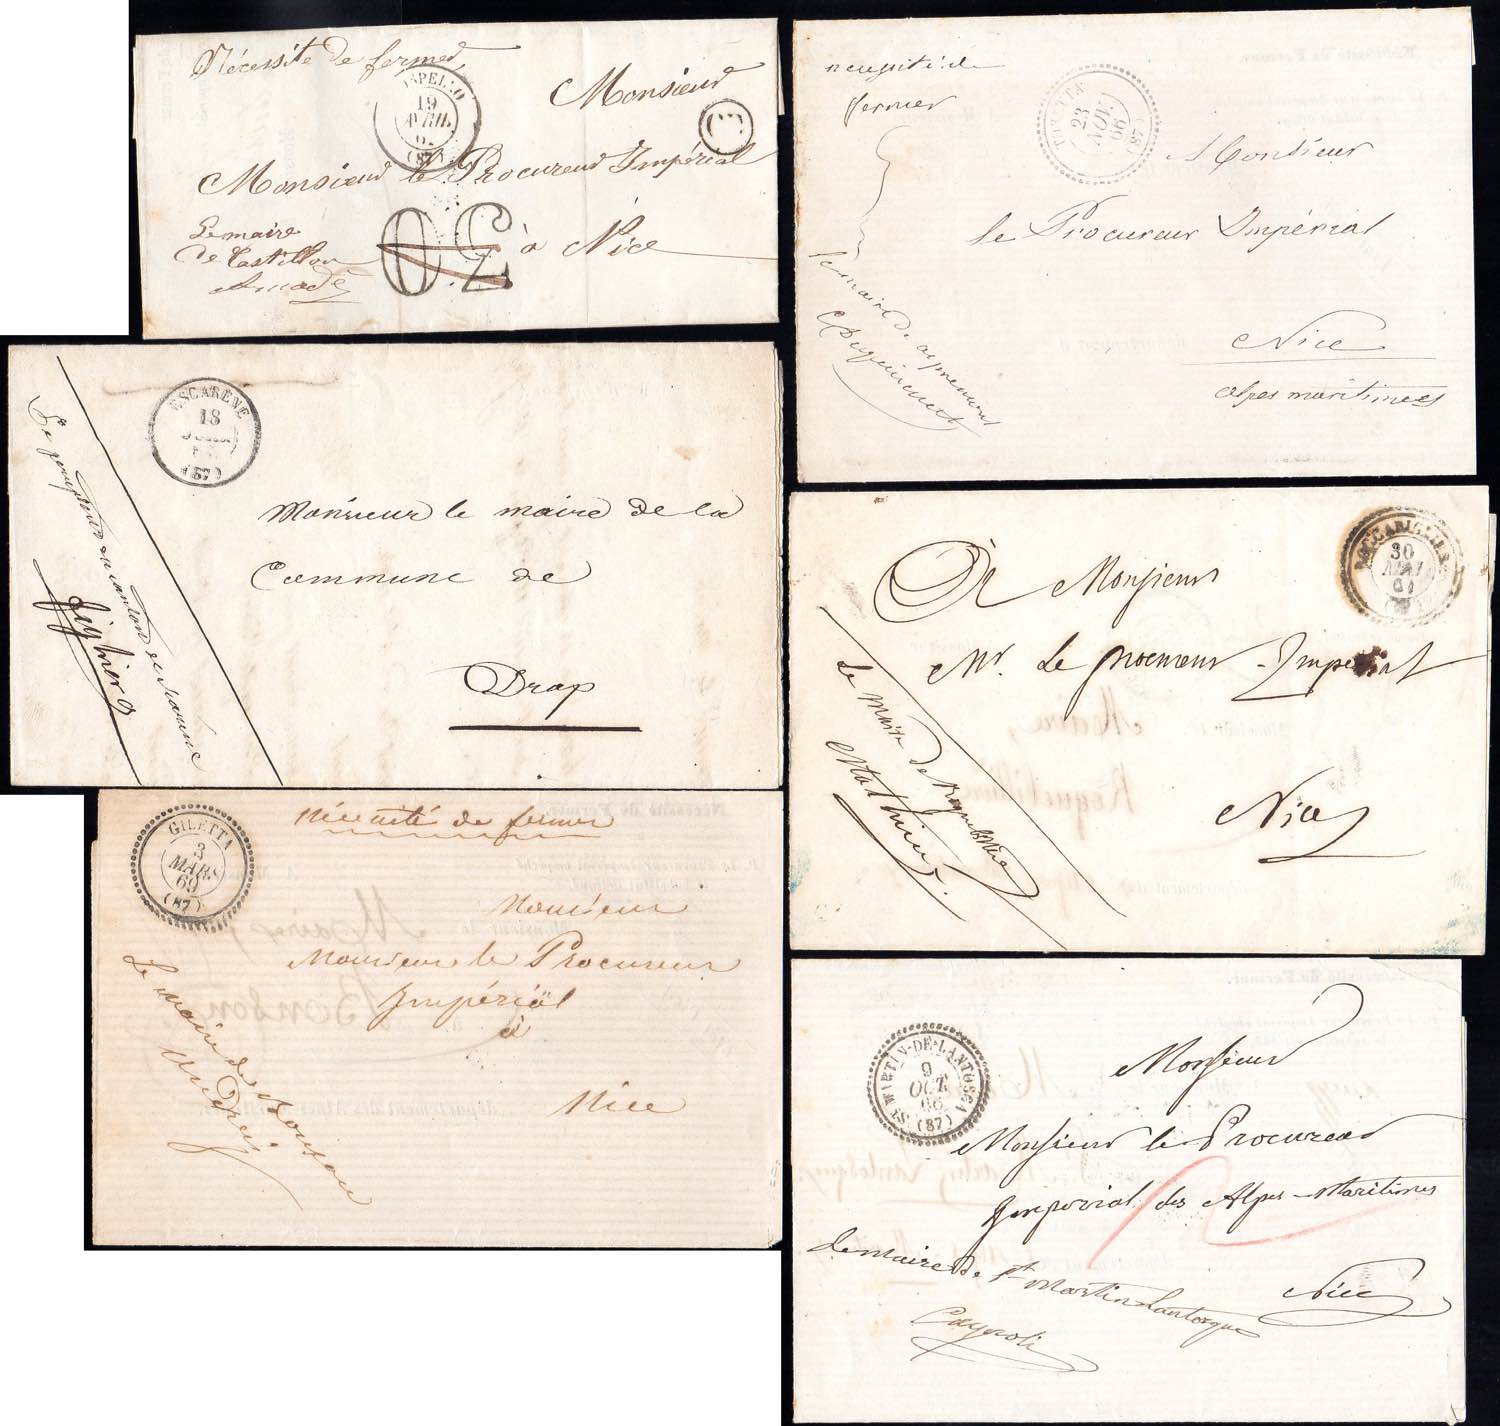 Nécessité de fermer
SPELLO
19
AVRIL
(87)
Monsieur
C
Monsieur le Procureur Impérial
30
à Nice
Le maire
de Castillon
Amadé
nécessité de
fermer
23
NOV.
66
(87)
Monsieur
le Procureur Impérial
Nice
Alpes maritimes
Le maire de aspremont
ESCARÈNE
18
(87)
Monsieur le maire de la
Commune de
Drap
ROCCABIGLIERA
30
MAI
61
A Monsieur
Mr. Le procureur Impérial
Nice
Le Maire de Roquebillière
GILETTA
3
MARS
69
(87)
Nécessité de fermer
Monsieur
Monsieur le Procureur
Impérial
à
Nice
Le maire de Bonson
ST MARTIN-DE-LANTOSCA
9
OCT.
66
(87)
Monsieur
Monsieur le Procureur
Imperial des Alpes-Maritimes
Nice
Le maire de St Martin Lantosque
Cagnoli